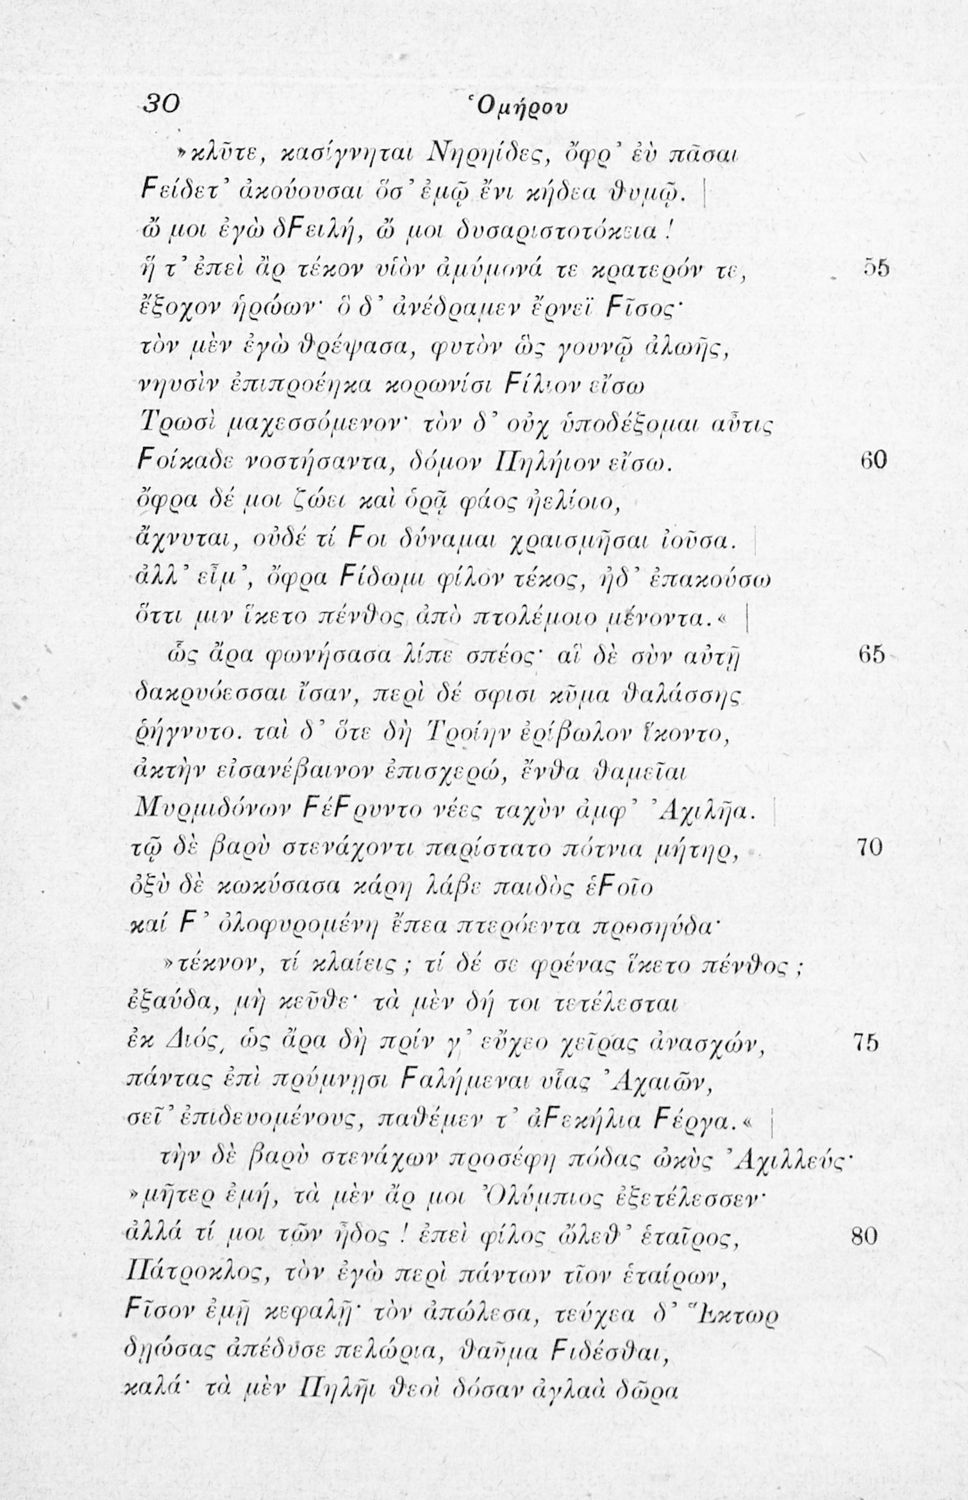 30 Ὁμήρου
»κλῦτε, κασίγνηται Νηρηίδες, ὄφρ’ ἐὺ πᾶσαι
Ϝείδετ’ ἀκούουσαι ὅσ’ ἐμῷ ἔνι κήδεα θυμῷ. |
ὤ μοι ἐγὼ δϜειλή, ὤ μοι δυσαριστοτόκεια !
ἥ τ’ ἐπεὶ ἂρ τέκον υἱὸν ἀμύμονά τε κρατερόν τε, 55
ἔξοχον ἡρώων· ὃ δ’ ἀνέδραμεν ἔρνεϊ Ϝῖσος·
τὸν μὲν ἐγὼ θρέψασα, φυτὸν ὣς γουνῷ ἀλωῆς,
νηυσὶν ἐπιπροέηκα κορωνίσι Ϝίλιον εἴσω
Τρωσὶ μαχεσσόμενον· τὸν δ’ οὐχ ὑποδέξομαι αὖτις
Ϝοίκαδε νοστήσαντα, δόμον Πηλήιον εἴσω. 60
ὄφρα δέ μοι ζώει καὶ ὁρᾷ φάος ἠελίοιο,
ἄχνυται, οὐδέ τί Ϝοι δύναμαι χραισμῆσαι ἰοῦσα. |
ἀλλ’ εἶμ’, ὄφρα Ϝίδωμι φίλον τέκος, ἠδ’ ἐπακούσω
ὅττι μιν ἵκετο πένθος ἀπὸ πτολέμοιο μένοντα.« |
ὣς ἄρα φωνήσασα λίπε σπέος· αἳ δὲ σὺν αὐτῇ 65
δακρυόεσσαι ἴσαν, περὶ δέ σφισι κῦμα θαλάσσης
ῥήγνυτο. ταὶ δ’ ὅτε δὴ Τροίην ἐρίβωλον ἵκοντο,
ἀκτὴν εἰσανέβαινον ἐπισχερώ, ἔνθα θαμεῖαι
Μυρμιδόνων ϜέϜρυντο νέες ταχὺν ἀμφ’ Ἀχιλῆα. |
τῷ δὲ βαρὺ στενάχοντι παρίστατο πότνια μήτηρ, 70
ὀξὺ δὲ κωκύσασα κάρη λάβε παιδὸς ἑϜοῖο
καί Ϝ’ ὀλοφυρομένη ἔπεα πτερόεντα προσηύδα·
»τέκνον, τί κλαίεις ; τί δέ σε φρένας ἵκετο πένθος ;
ἐξαύδα, μὴ κεῦθε· τὰ μὲν δή τοι τετέλεσται
ἐκ Διός, ὡς ἄρα δὴ πρίν γ’ εὔχεο χεῖρας ἀνασχών, 75
πάντας ἐπὶ πρύμνῃσι Ϝαλήμεναι υἷας Ἀχαιῶν,
σεῖ’ ἐπιδευομένους, παθέμεν τ’ ἀϜεκήλια Ϝέργα.« |
τὴν δὲ βαρὺ στενάχων προσέφη πόδας ὠκὺς Ἀχιλλεύς·
»μῆτερ ἐμή, τὰ μὲν ἄρ μοι Ὀλύμπιος ἐξετέλεσσεν·
ἀλλά τί μοι τῶν ἦδος ! ἐπεὶ φίλος ὤλεθ’ ἑταῖρος, 80
Πάτροκλος, τὸν ἐγὼ περὶ πάντων τῖον ἑταίρων,
Ϝῖσον ἐμῇ κεφαλῇ· τὸν ἀπώλεσα, τεύχεα δ’ Ἕκτωρ
δῃώσας ἀπέδυσε πελώρια, θαῦμα Ϝιδέσθαι,
καλά· τὰ μὲν Πηλῆι θεοὶ δόσαν ἀγλαὰ δῶρα